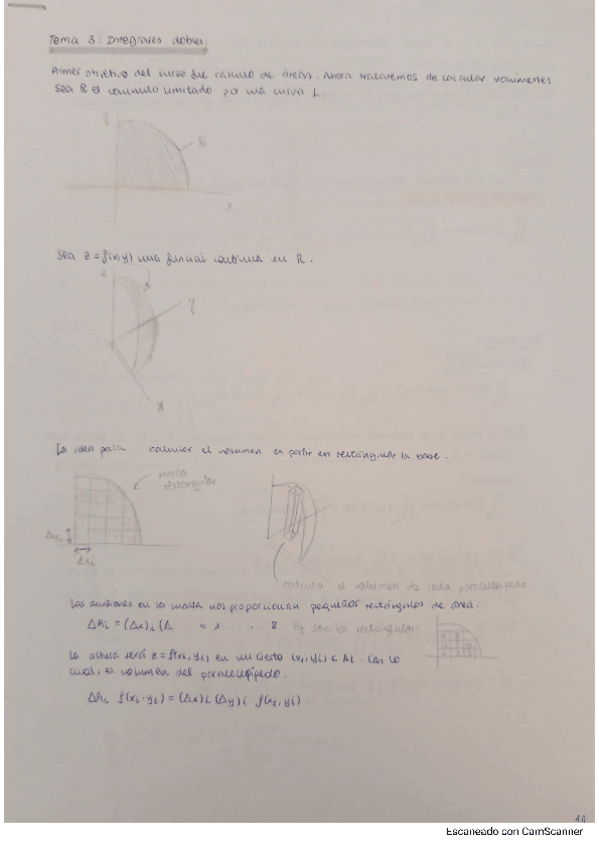 Tema 3: Integrales dobles.
Primer objetivo del curso fue cálculo de áreas. Ahora trataremos de calcular volúmenes
Sea R el conjunto limitado por una curva L.
Y
R
X
Sea z = f(x,y) una función continua en R.
z
Y
X
La idea para calcular el volumen es partir en rectángulos la base.
malla
rectangular
Δyi
Δxi
calcula el volumen de cada paralelepípedo.
Las divisiones en la malla nos proporcionan pequeños rectángulos de área:
ΔAi = (Δx)i (Δ 8 son los rectángulos.
La altura será z = f(xi, yi) en un cierto (xi, yi) ⊂ Ai. Con lo
cual, el volumen del paralelepípedo.
ΔAi f(xi, yi) = (Δx)i (Δy)i f(xi, yi).
Escaneado con CamScanner